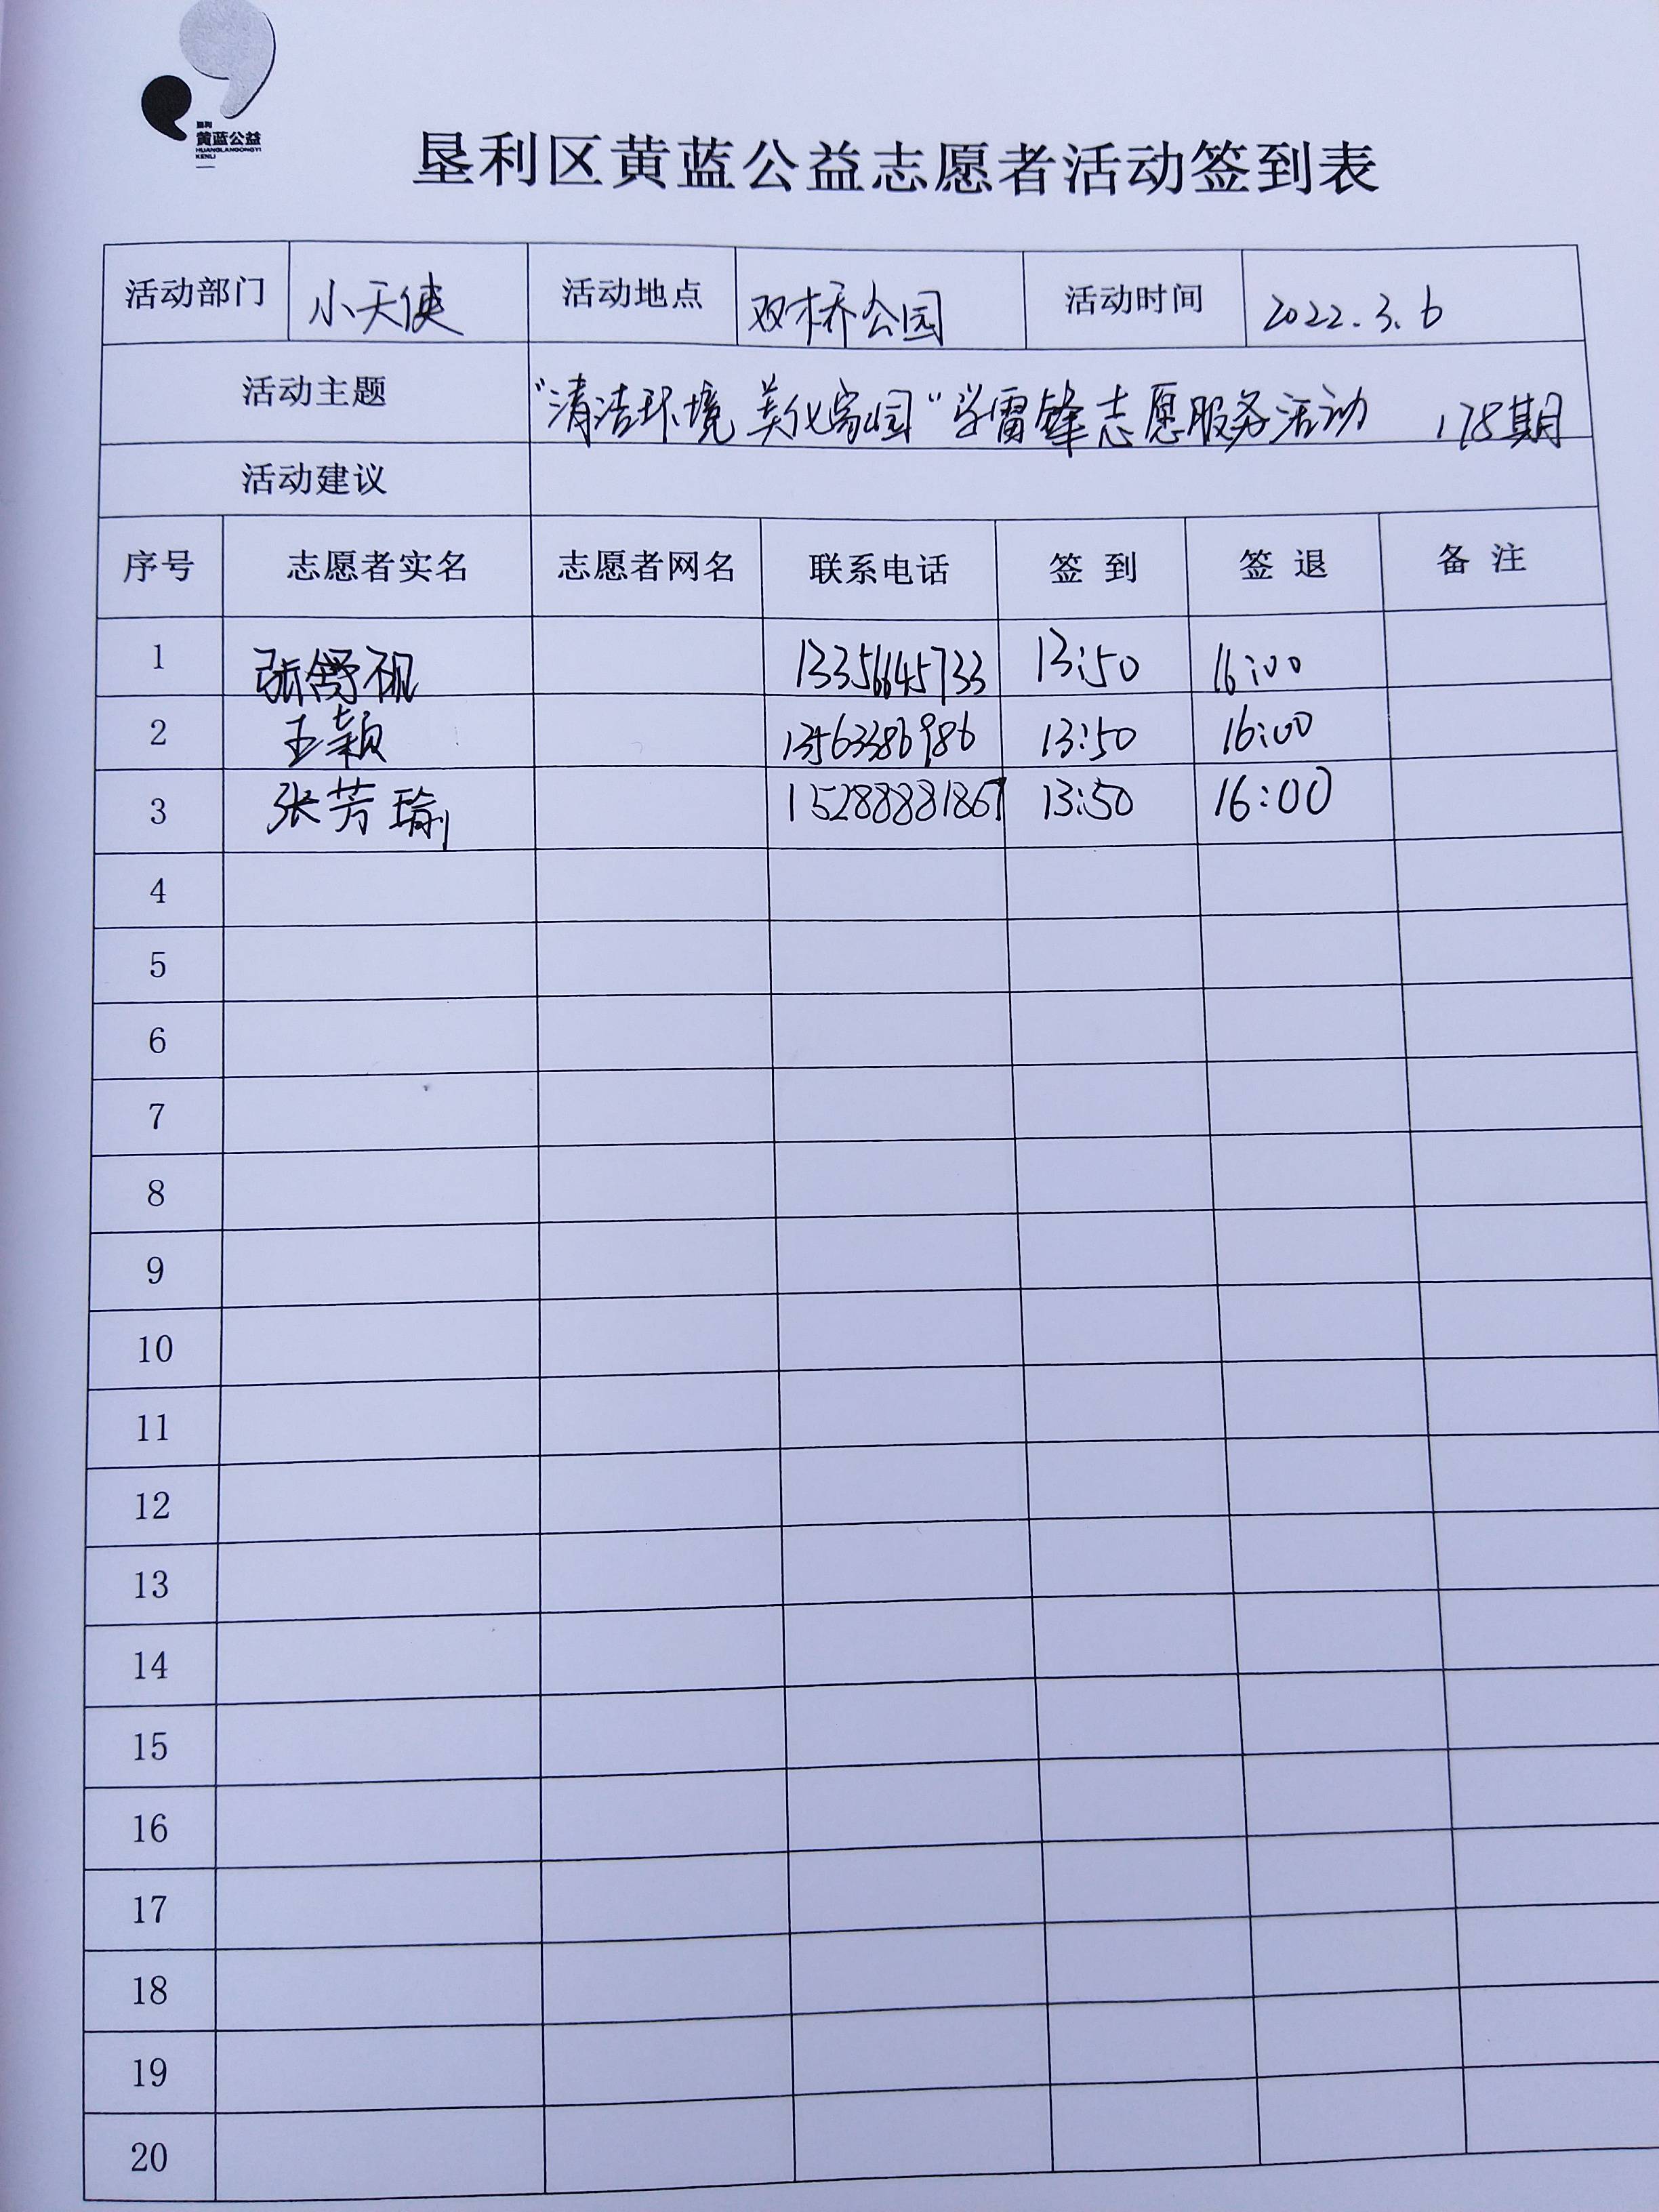 垦利
黄蓝公益
HUANGLANGONGYI
KENLI
垦利区黄蓝公益志愿者活动签到表
活动部门 小天使 活动地点 双桥公园 活动时间 2022.3.6
活动主题 "清洁环境 美化家园"学雷锋志愿服务活动 178期
活动建议
序号 志愿者实名 志愿者网名 联系电话 签 到 签 退 备 注
1 张舒 13356645733 13:50 16:00
2 王颖 13563386986 13:50 16:00
3 张芳瑜 15288881867 13:50 16:00
4
5
6
7
8
9
10
11
12
13
14
15
16
17
18
19
20